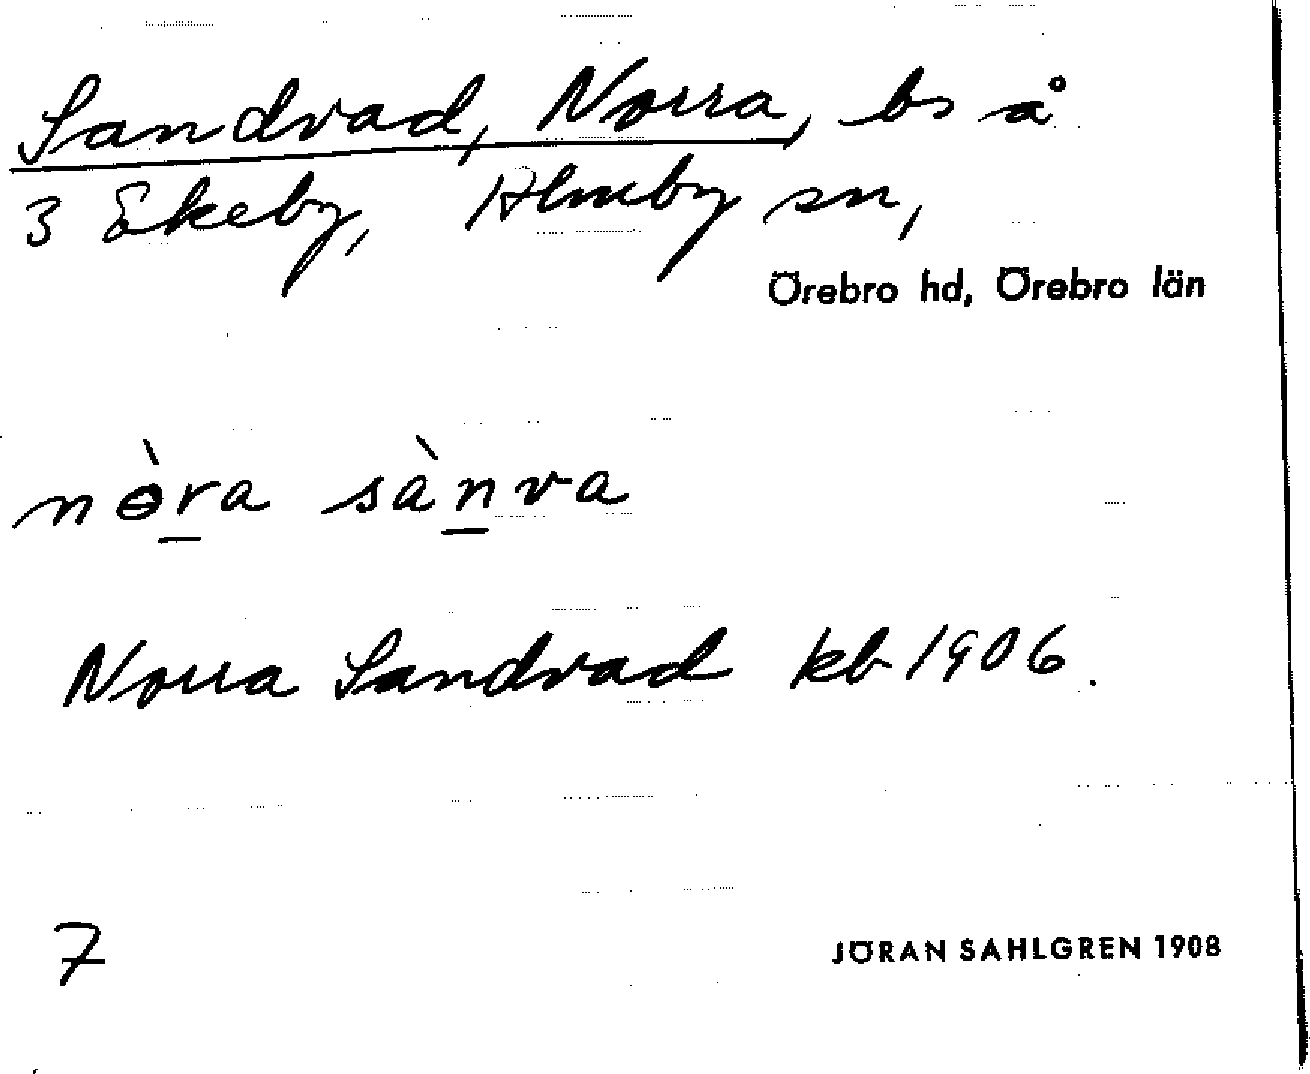 Sandvad, Norra, bs å
3 Ekeby, Almby sn,
Örebro hd, Örebro län
nɵ̀ra sànva
Norra Sandvad kb 1906.
7
JÖRAN SAHLGREN 1908